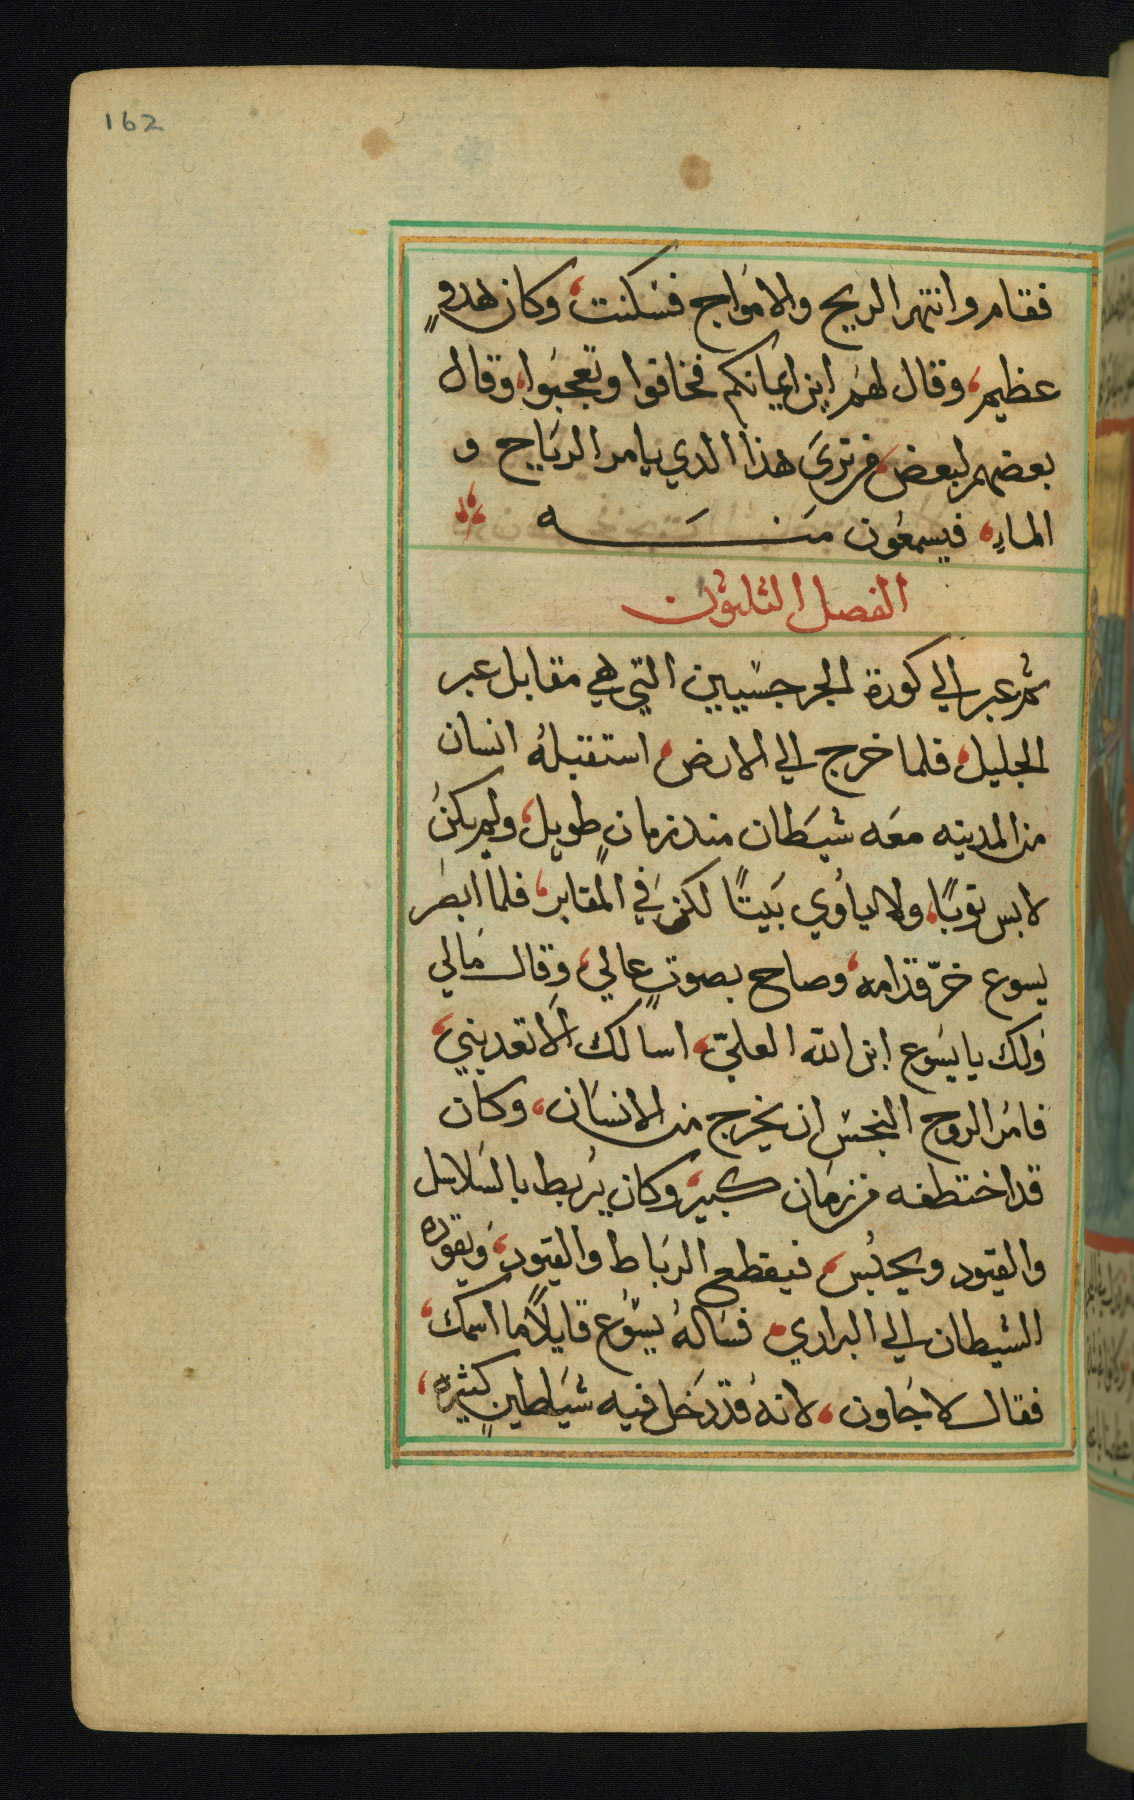 162
فقام وانتهر الريح والامواج فسكنت، وكان هدوٍ
عظيم، وقال لهم اين ايمانكم فخافوا وتعجبوا، وقال
بعضهم لبعض، من تري هذا الدي يامر الرياح و
الماء، فيسمعون منه
الفصل الثلثون
ثم عبر الي كورة الجرجسيين التي هي مقابل عبر
الجليل، فلما خرج الي الارض، استقبله انسان
من المدينه معه شيطان مند زمانٍ طويل، وليم يكن
لابس توبًا، ولا ياوي بيتًا لكن في المقابر، فلما ابصر
يسوع خرّ قدامه، وصاح بصوتٍ عالي، وقال مالي
ولك يا يسوع ابن الله العليّ، اسالك الا تعدبني،
فامر الروح النجس ان يخرج من الانسان، وكان
قد اختطفه من زمان كبير، وكان يربط بالسلاسل
والقيود ويحبس، فيقطع الرباط والقيود، ويقوده
الشيطان الي البراري، فساله يسوع قايلاً ما اسمك،
فقال لاجاون، لانه قد دخل فيه شياطين كثيره،